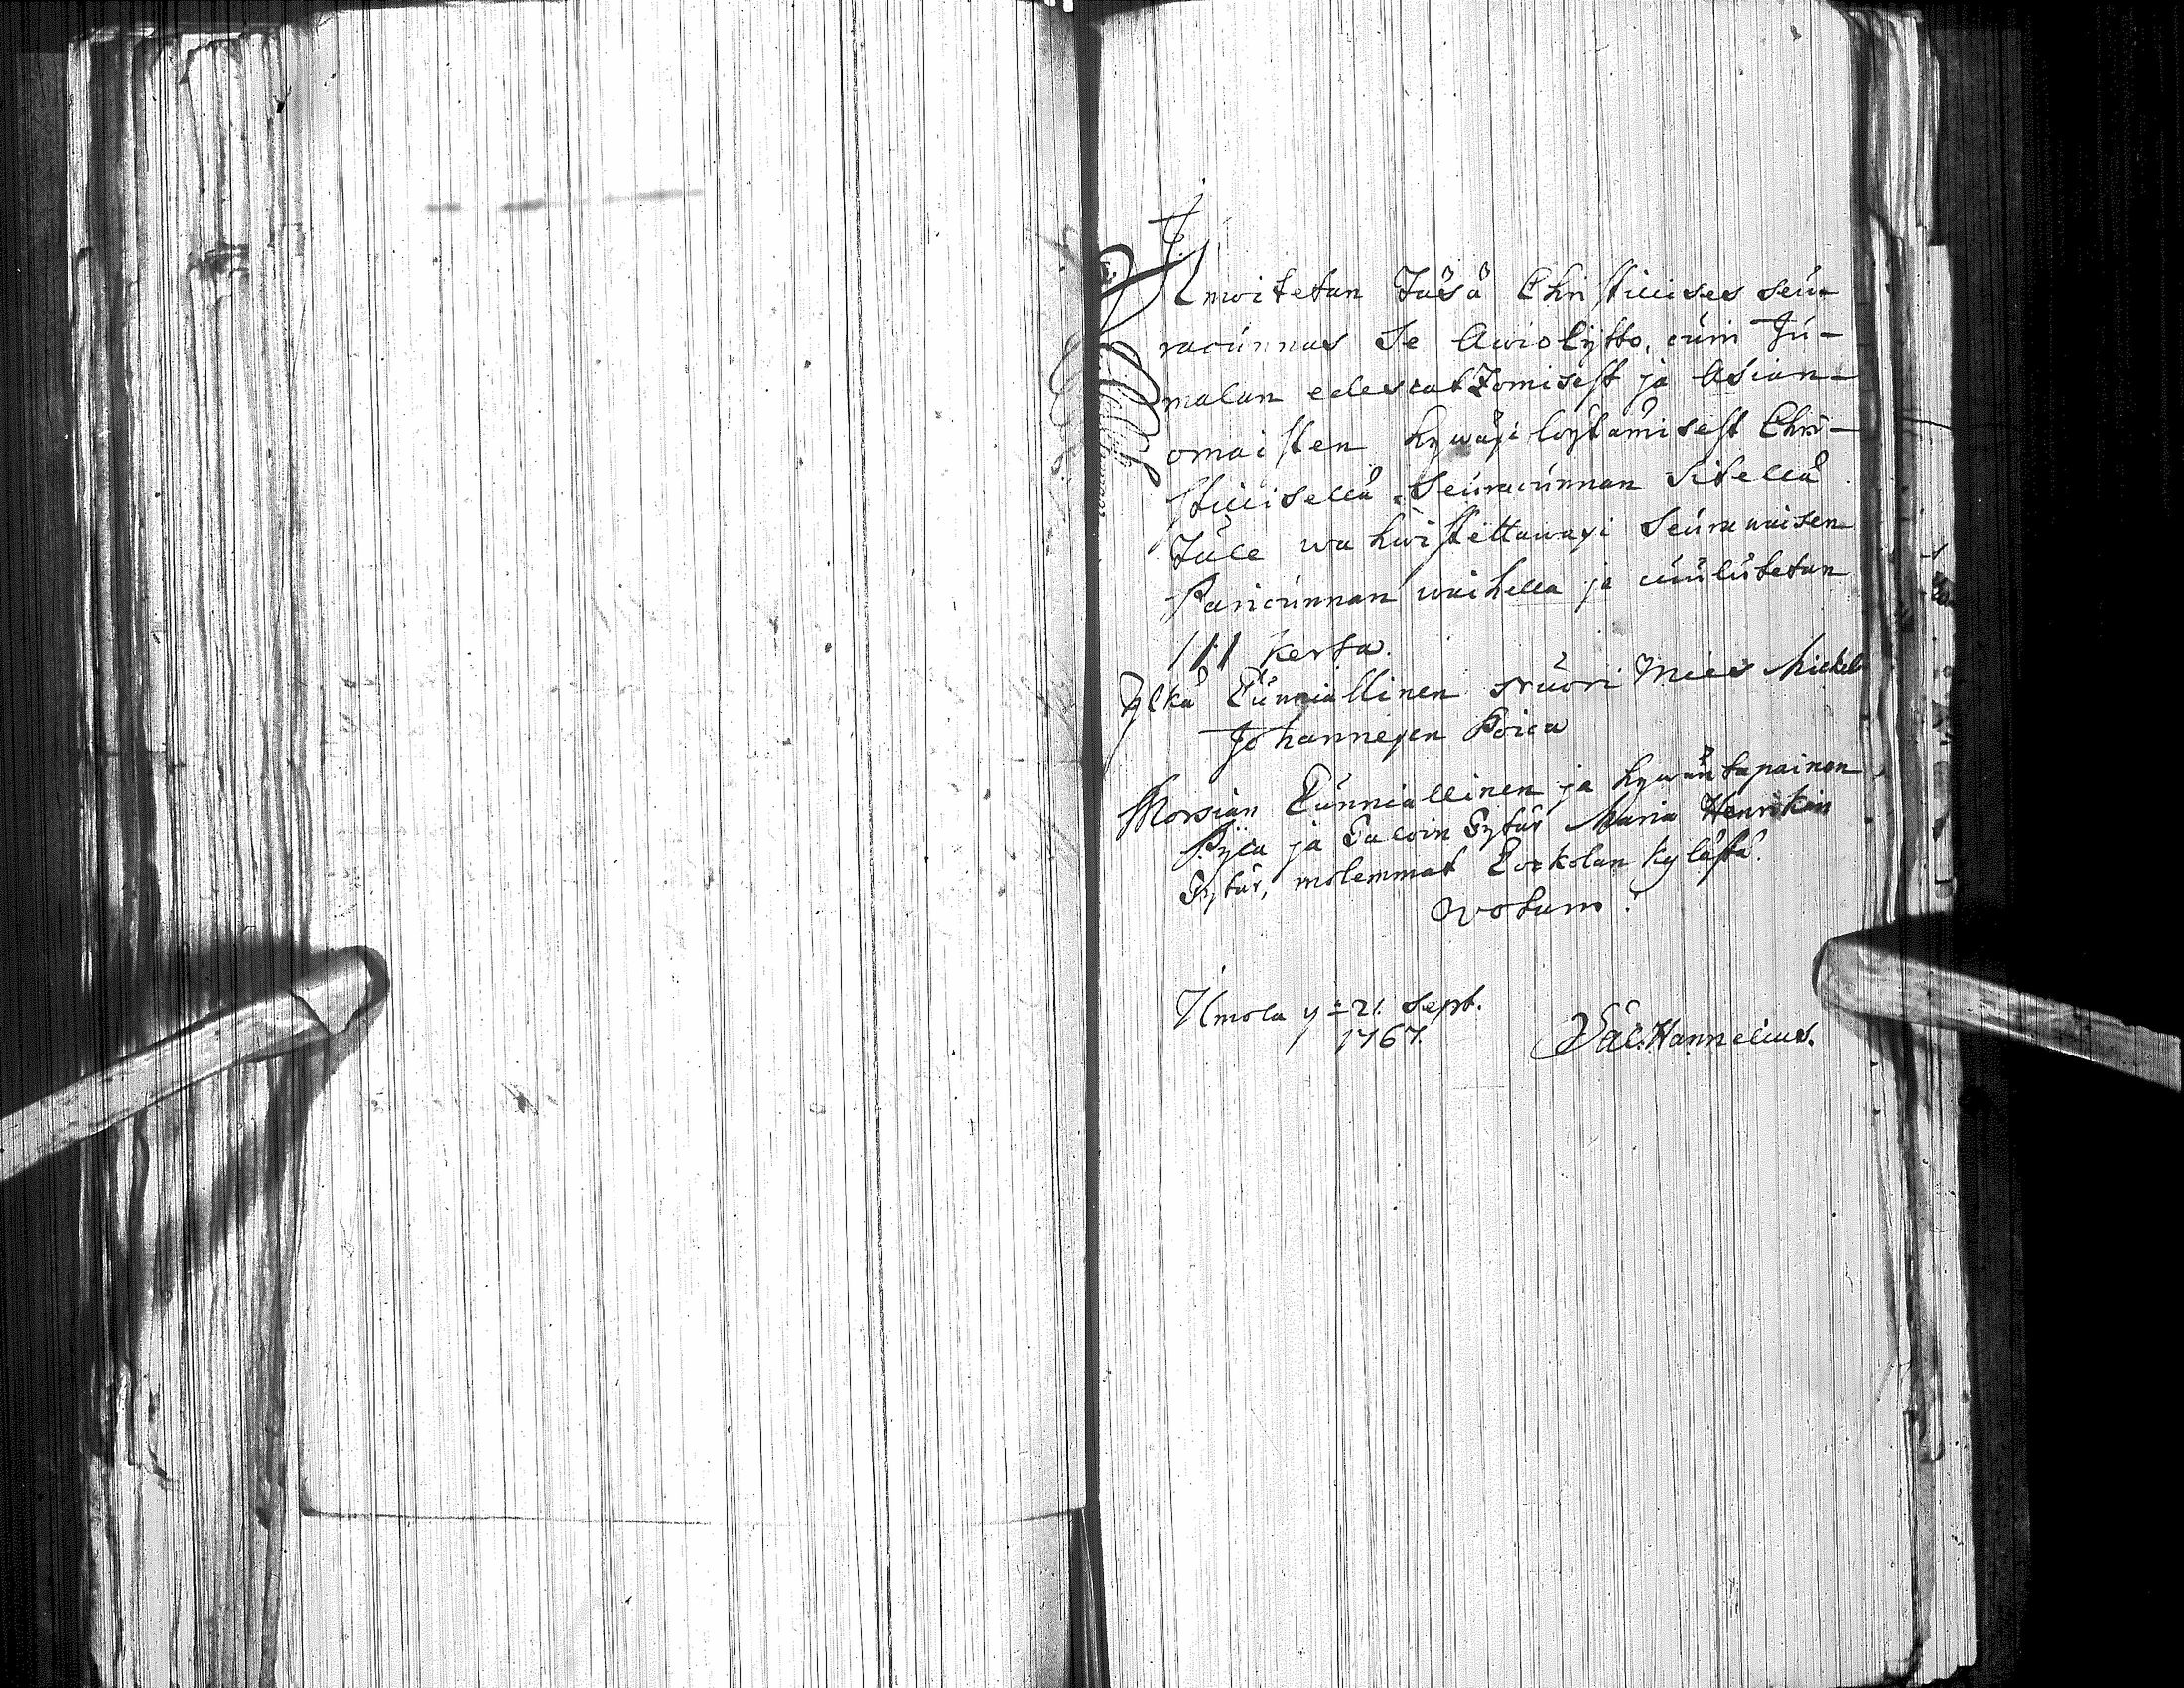 Ilmoitetan Täsä Christilises seu-
racunnas Se Awiolijtto, cuin Ju-
malan edescatzomisest ja Asian-
omaisten hywäxi löytämisest Chri-
stilisellä Seuracunnan Sitellä
Tule wahwistettawaxi Seurawaisen
Pariscunnan waihella ja cuulutetan
1:1 kerta.
Ylkä Cunniallinen Nuori Mies Michel
Johannexen Poica
Morsian Cunniallinen ja hywäntapainen
Pijca ja Taloin Tytär Maria Henrikin
Tytär, molemmat Cockolan kylästä.
Votum.
Ilmola 21. Sept.
1767.
Sal. Hannelius.